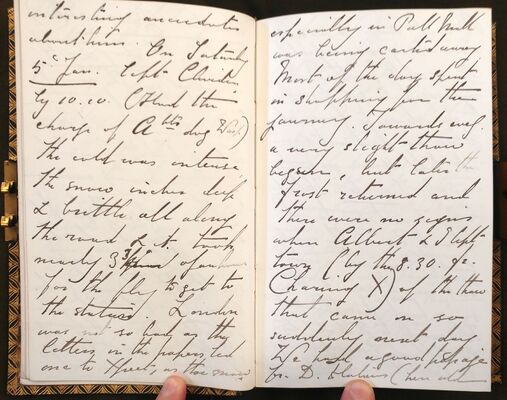 interesting anecdotes
about him. On Saturday
5th Jan. left
by 10.10. (Had the
charge of A dog
The cold was intense,
the snow inches deep
& brittle all along
the road & it took
nearly 3 of an hour
for the fly to get to
the station. London
was not so bad as the
letters in the papers led
one to expect, as the snow
especially in Pall Mall
was being carted away.
Most of the day spent
in shopping for the
journey. Towards evg.
a very slight thaw
began, but later the
frost returned and
there were no signs
when Albert & I left
town (by the 8.30. fr.
Charing X) of the thaw
that came on so
suddenly next day.
We had a good passage
fr. D. (her old